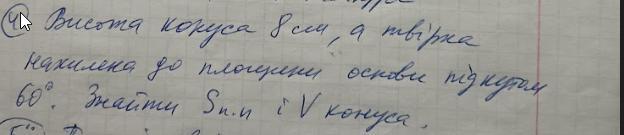 ④ Висота конуса 8 см, а твірна
нахилена до площини основи під кутом
60°. Знайти Sп.п і V конуса.